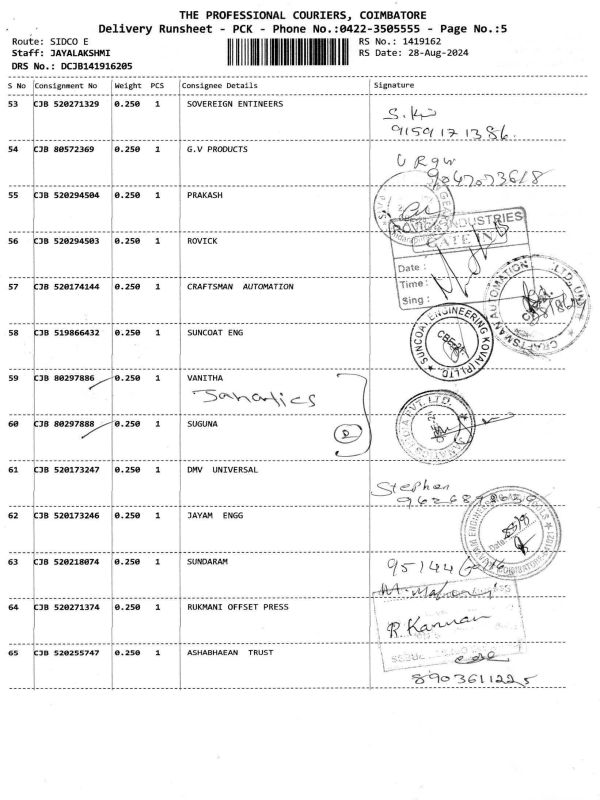 THE PROFESSIONAL COURIERS, COIMBATORE
Delivery Runsheet - PCK - Phone No.:0422-3505555 - Page No.:5
Route: SIDCO E RS No.: 1419162
Staff: JAYALAKSHMI RS Date: 28-Aug-2024
DRS No.: DCJB141916205
S No Consignment No Weight PCS Consignee Details Signature
53 CJB 520271329 0.250 1 SOVEREIGN ENTINEERS
9159171386
54 CJB 80572369 0.250 1 G.V PRODUCTS
55 CJB 520294504 0.250 1 PRAKASH
INDUSTRIES
GATE IN
56 CJB 520294503 0.250 1 ROVICK
Date :
Time :
Sing :
57 CJB 520174144 0.250 1 CRAFTSMAN AUTOMATION
CRAFTSMAN AUTOMATION
58 CJB 519866432 0.250 1 SUNCOAT ENG
SUNCOAT ENGINEERING KOVAI (P) LTD
59 CJB 80297886 0.250 1 VANITHA
Janatics
60 CJB 80297888 0.250 1 SUGUNA
D
61 CJB 520173247 0.250 1 DMV UNIVERSAL
Stephen
62 CJB 520173246 0.250 1 JAYAM ENGG
63 CJB 520218074 0.250 1 SUNDARAM
64 CJB 520271374 0.250 1 RUKMANI OFFSET PRESS
R. Kannan
65 CJB 520255747 0.250 1 ASHABHAEAN TRUST
8903611225